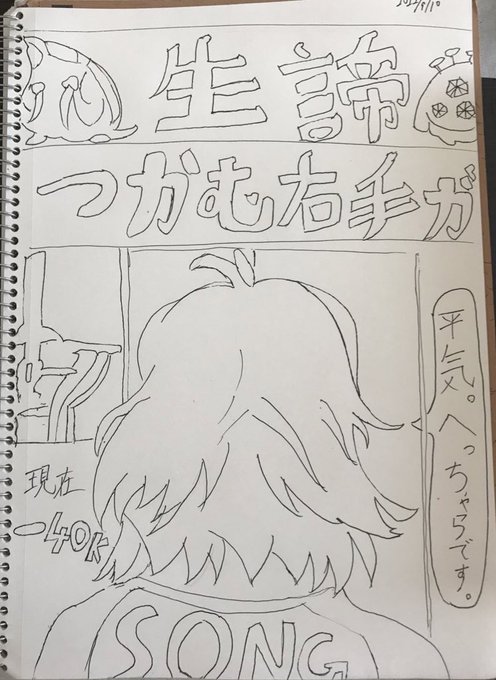 2022/5/10
生諦
つかむ右手が
平気。へっちゃらです。
現在
-40K
SONG